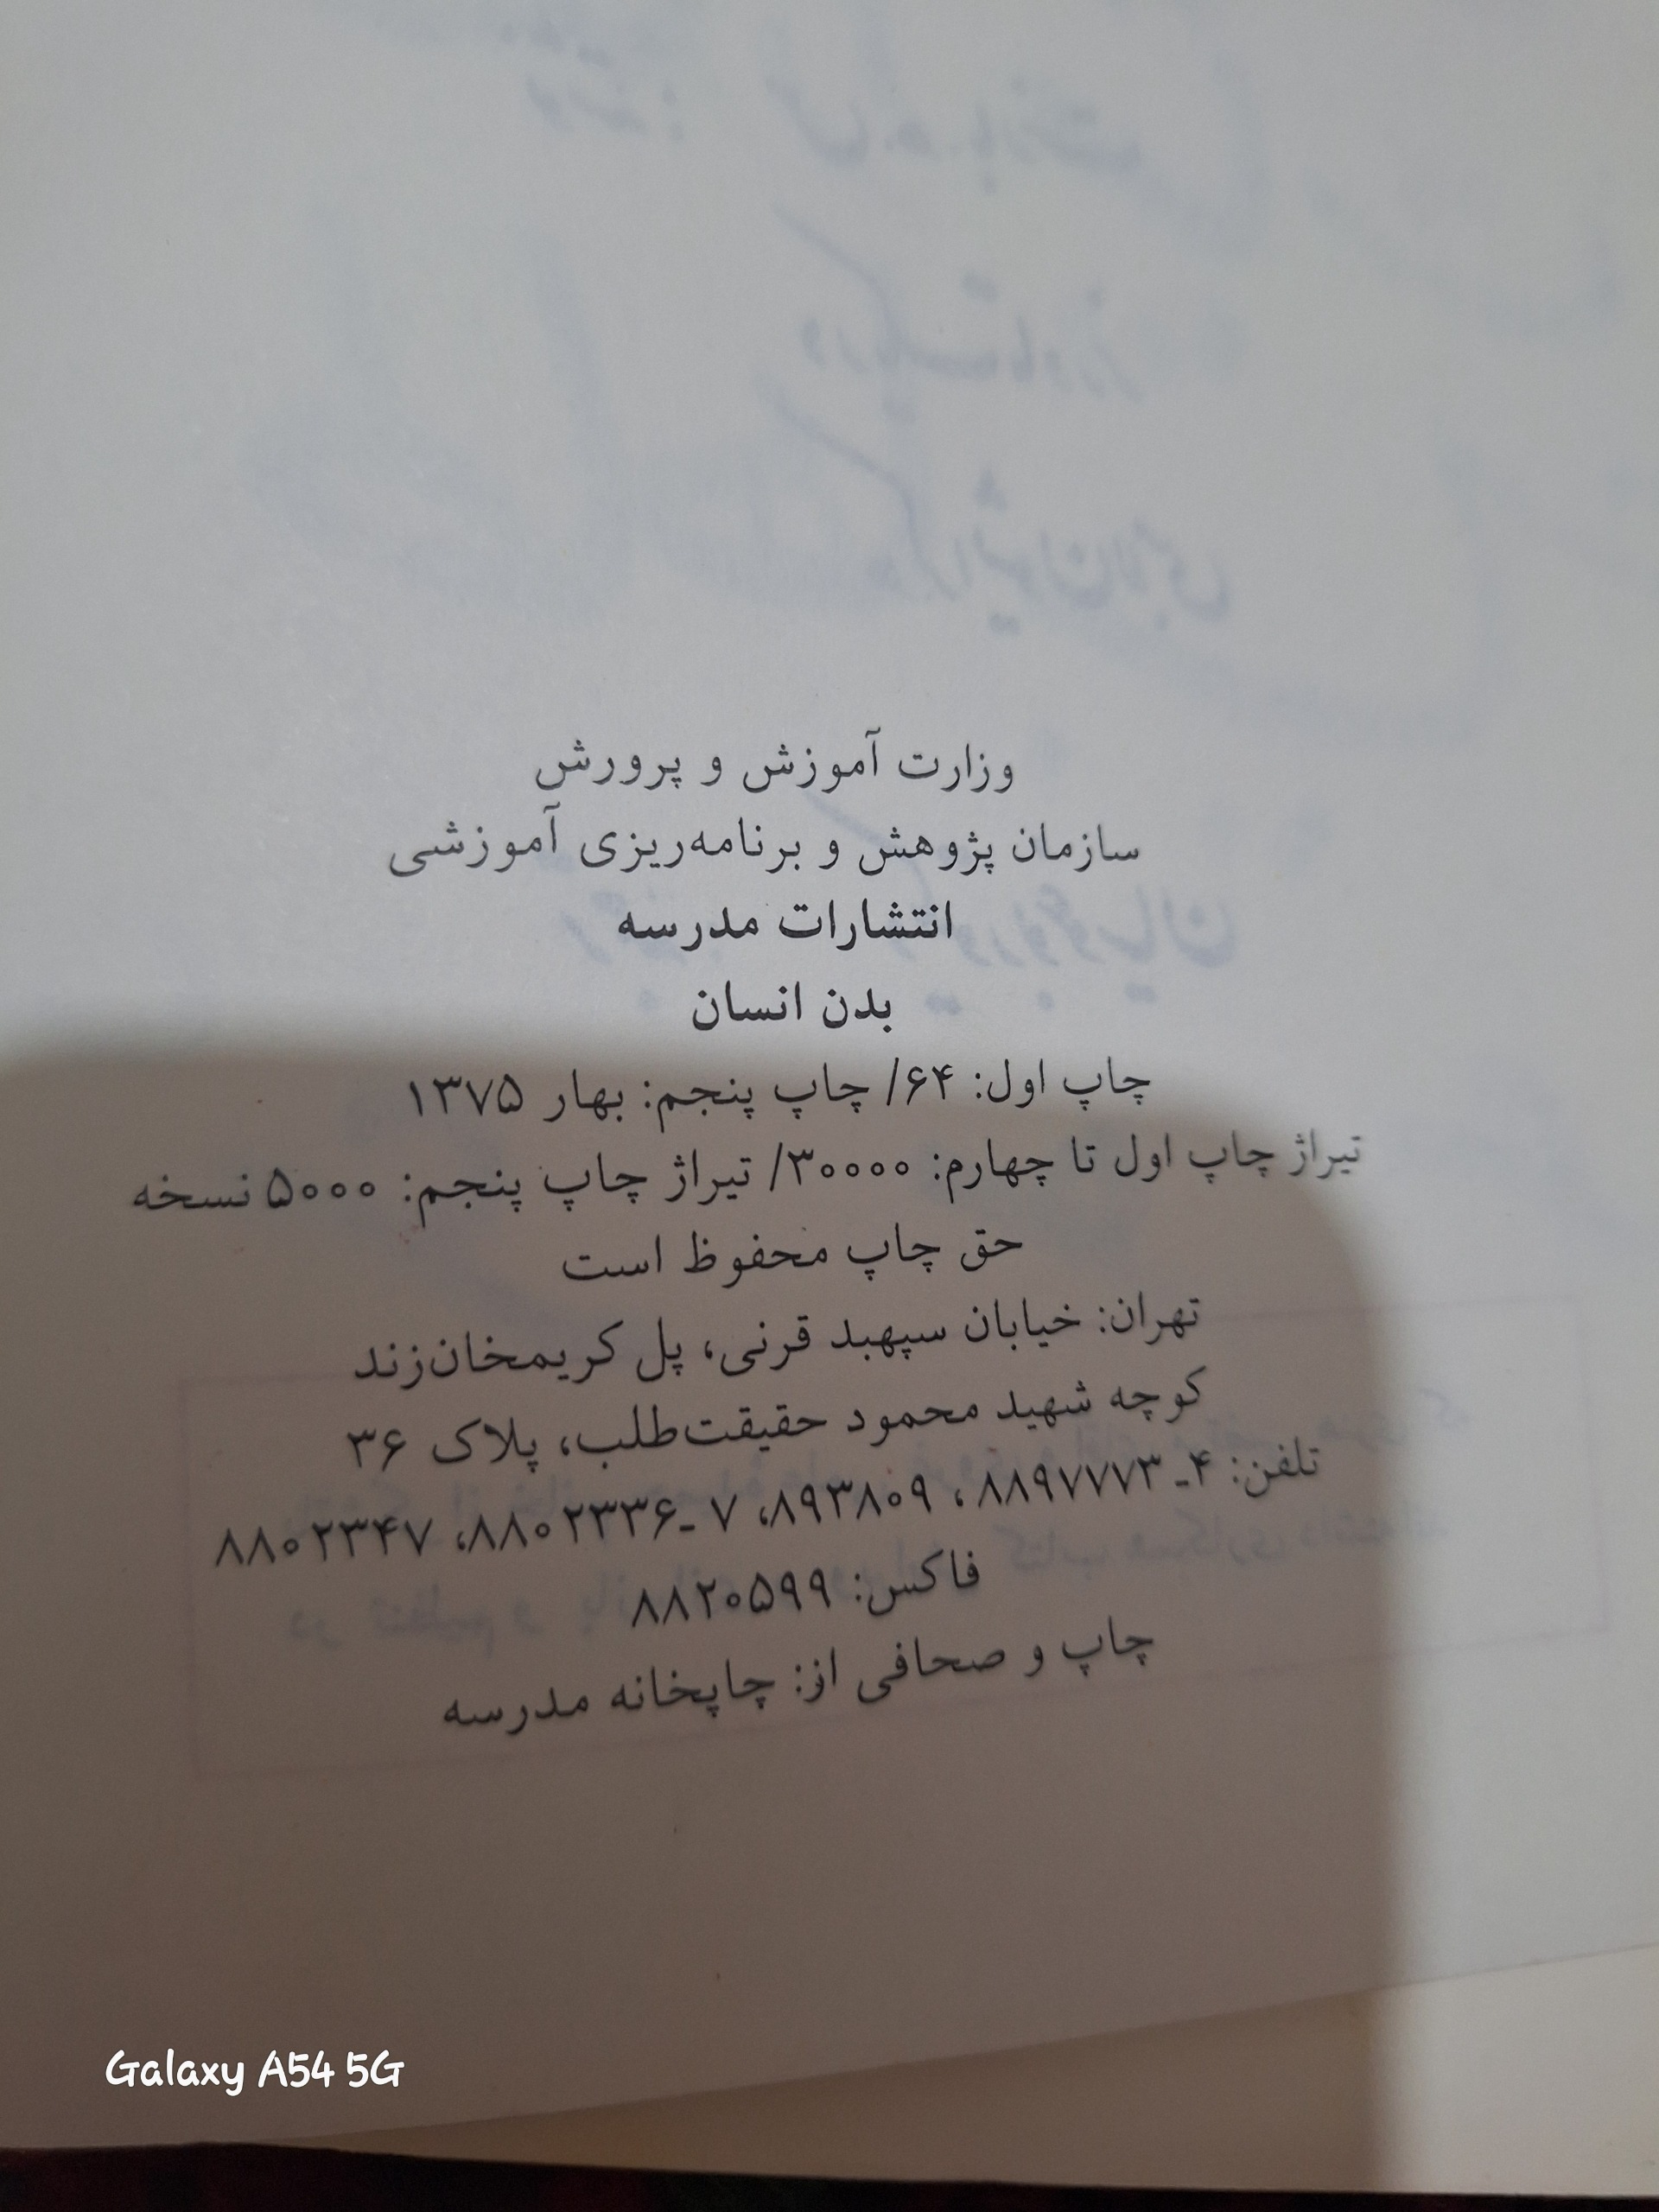 وزارت آموزش و پرورش
سازمان پژوهش و برنامه‌ریزی آموزشی
انتشارات مدرسه
بدن انسان
چاپ اول: ۶۴/ چاپ پنجم: بهار ۱۳۷۵
تیراژ چاپ اول تا چهارم: ۳۰۰۰۰/ تیراژ چاپ پنجم: ۵۰۰۰ نسخه
حق چاپ محفوظ است
تهران: خیابان سپهبد قرنی، پل کریمخان‌زند
کوچه شهید محمود حقیقت‌طلب، پلاک ۳۶
تلفن: ۴ـ ۸۸۹۷۷۷۳ ، ۸۹۳۸۰۹، ۷ ـ۸۸۰۲۳۳۶، ۸۸۰۲۳۴۷
فاکس: ۸۸۲۰۵۹۹
چاپ و صحافی از: چاپخانه مدرسه
Galaxy A54 5G